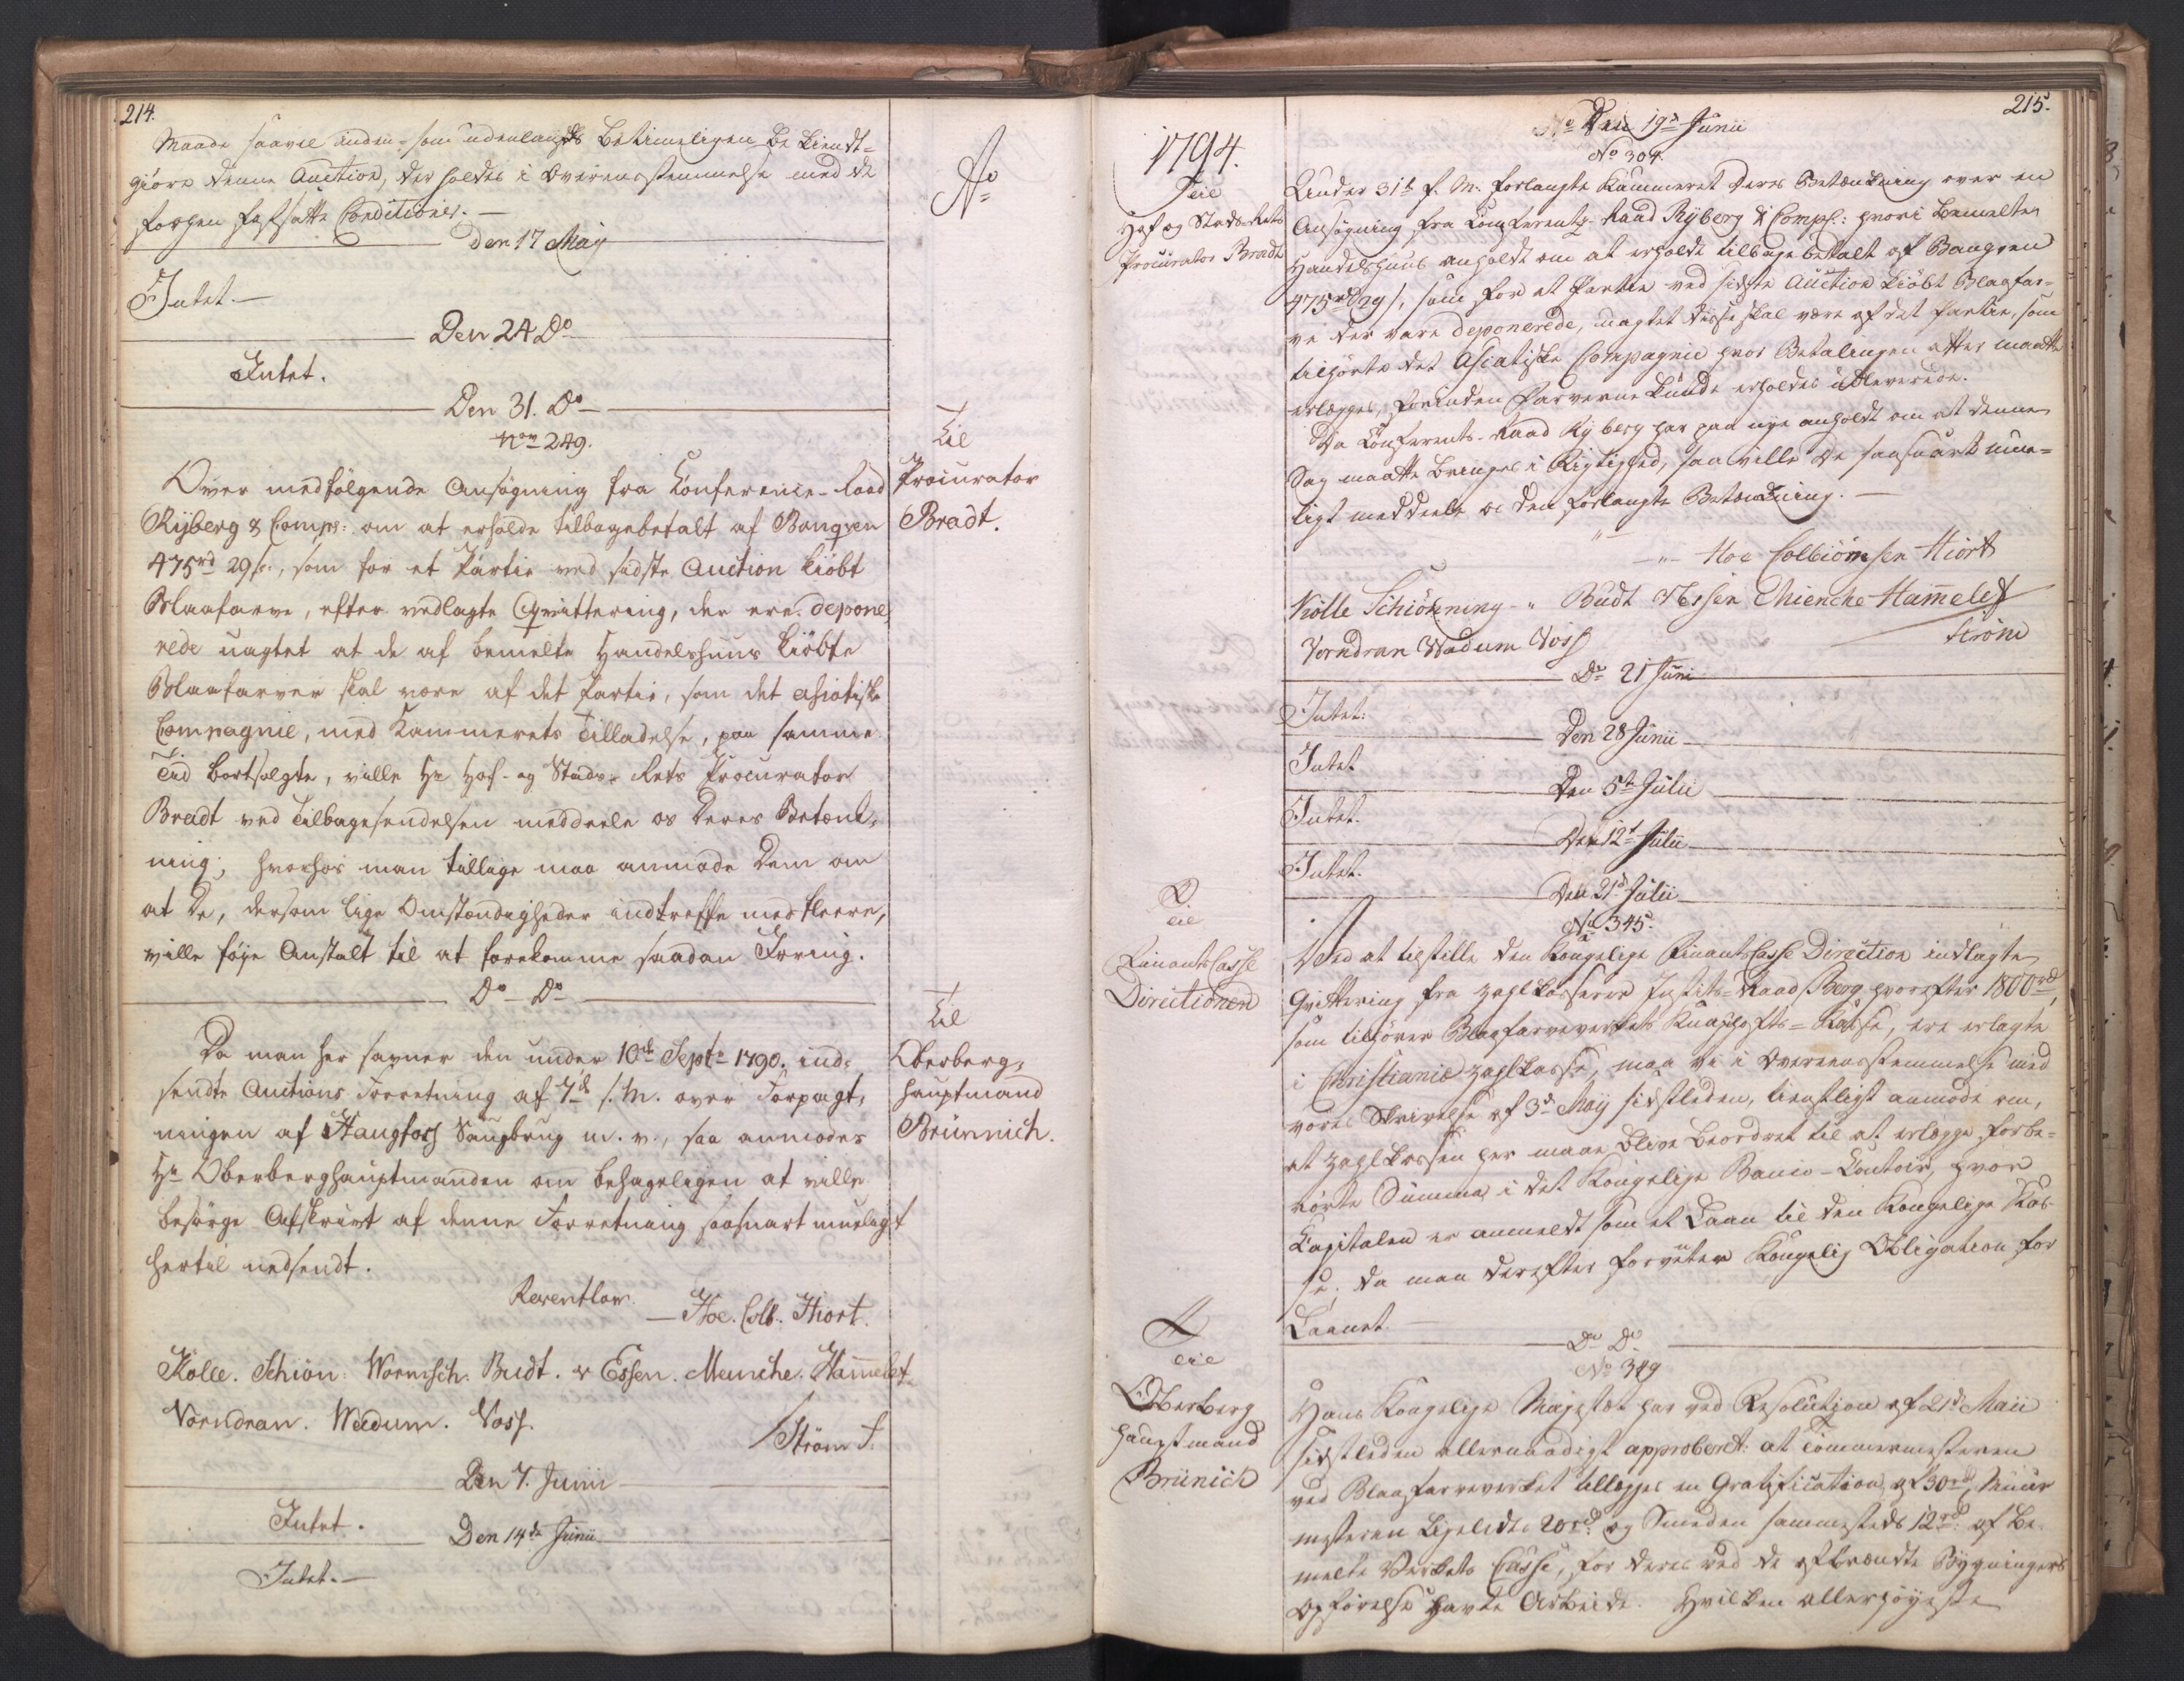 214.
Maade saavel inden- som udenlands betimeligen bekiendt-
giøre denne Auction, der holdes i Overensstemmelse med de
forhen fastsatte Conditioner.
Den 17 May
Intet.
Den 24 Do
Intet.
Den 31. Do
249.
Til
Procurator
Bradt.
Over medfølgende Ansøgning fra Conference-Raad
Ryberg & Comp: om at erholde tilbagebetalt af Banqven
475 rd 29 s., som for et Partie ved sidste Auction kiöbt
Blaafarve, efter vedlagte Qvittering, der ere depone-
rede uagtet at de af bemelte Handelshuus kiöbte
Blaafarver skal være af det Partie, som det asiatiske
Compagnie, med Kammerets Tilladelse, paa samme
Tid bortsolgte, ville Hr Hof- og Stads-Rets Procurator
Bradt ved Tilbagesendelsen meddele os Deres Betænk-
ning; hvorhos man tillige maa anmode Dem om
at De, dersom lige Omstændigheder indtreffe med fleere,
ville föye Anstalt til at forekomme saadan Irring.
Do Do
Til
Oberberg-
hauptmand
Brünnich.
Da man her savner den under 10de Septr 1790. ind-
sendte Auctions Forretning af 7de s. M. over Forpagt-
ningen af Haugfoss Saugbrug m. v., saa anmodes
Hr Oberberghauptmanden om behageligen at ville
besörge Afskrivt af denne Forretning saasnart mueligt
hertil nedsendt.
Reventlow.
Hoe. Colb. Hiort.
Kölle. Schiön: Wormsch. Budt. v Essen. Meinche. Ham̄elef
Vorndran. Wadum. Voss.
Ström S.
Den 7. Junii
Intet.
Den 14de Junii
Intet.
No
215.
1794.
Den 19de Junii
No 304.
Til
Hof og Stads-Rets
Procurator Bradt
Under 31te f. M. forlangte Kammeret Deres Betænkning over en
Ansøgning fra Conferents-Raad Ryberg & Comp: hvori bemelte
Handelshuus anholdt om at erholde tilbagebetalt af Banqven
475 rd 29 s, som for et Partie ved sidste Auction kiöbt Blaafar-
ve der vare deponerede, uagtet disse skal være af det Partie, som
tilhörte det Asiatiske Compagnie hvor Betalingen atter maatte
erlægges, forinden Farverne kunde erholdes udleverede.
Da Conferents-Raad Ryberg har paa nye anholdt om at denne
Sag maatte bringes i Rigtighed, saa ville De saasnart mue-
ligt meddeele os den forlangte Betænkning.
Hoe Colbiörnsen Hiort
Kölle Schiönning " Budt Essen Thienche Ham̄eleff
Vorndran Wadum Voss
Ström
Dn 21 Juni
Intet.
Den 28 Junii
Intet
Den 5te Julii
Intet.
Den 12t Julii
Intet.
Den 21d Julii
No 345.
Til
Finants Casse
Directionen
Ved at tilstille den Kongelige Finants Casse Direction indlagte
Qvittering fra Zahlkasserer Justits-Raad Berg hvorefter 1800 rd,
som tilhører Blaafarveverkets Knapskafts-Kasse, ere erlagte
i Christianie Zahlkasse, maa vi i Overensstemmelse med
vores Skrivelse af 3d May sidstleden, tienstligst anmode om,
at Zahlkassen her maae blive beordret til at erlægge forbe-
rörte Summa i det Kongelige Banco-Contoir, hvor
Capitalen er anmeldt som et Laan til den Kongelige Kas-
se; da man derefter forventer Kongelig Obligation for
Laanet.
Do Do
No 349
Til
Oberberg
hauptmand
Brünich
Hans Kongelige Majestæt har ved Resolution af 21d Maii
sidstleden allernaadigst approberet: at Tömmermesteren
ved Blaafarveverket tillægges en Gratification af 30 rd, Muur
mesteren ligeledes 20 rd: og Smeden sammesteds 12 rd: af be-
melte Verkets Casse, for deres ved de afbrændte Bygningers
Opförelse havte Arbeide. Hvilken allerhöyeste